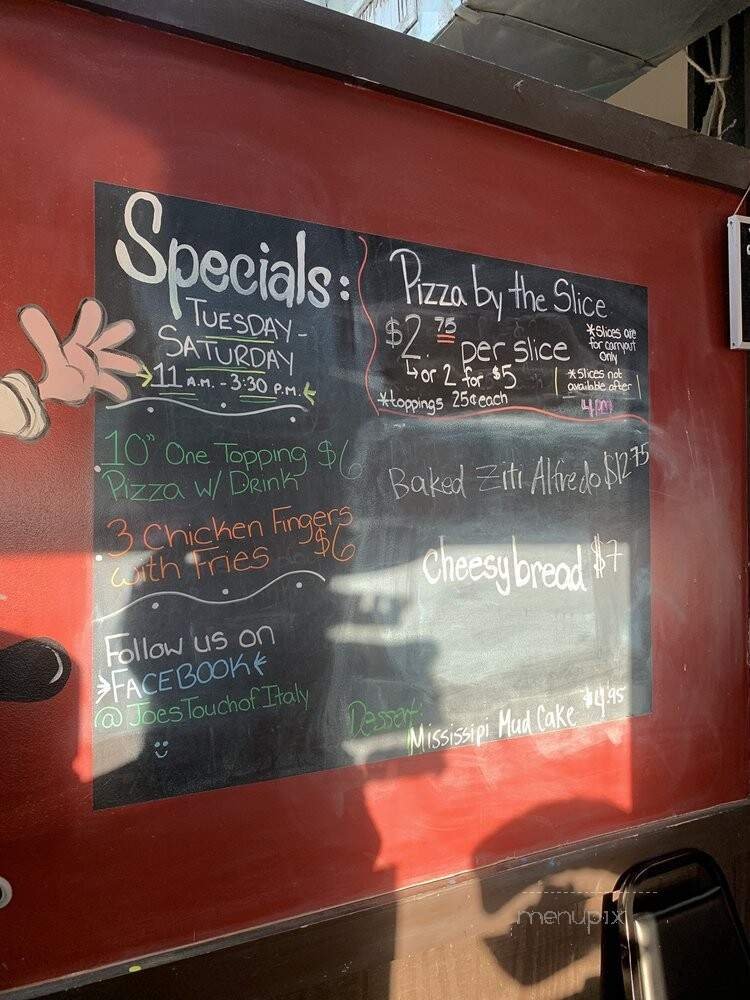 Specials:
TUESDAY -
SATURDAY
11 A.M. - 3:30 P.M.
10" One Topping $6
Pizza w/ Drink
3 Chicken Fingers
with Fries $6
Follow us on
FACEBOOK
@JoesTouchofItaly
Pizza by the Slice
$2.75 per slice
or 2 for $5
*toppings 25¢ each
*Slices are
for carryout
only
*Slices not
available after
4pm
Baked Ziti Alfredo $12.75
Cheesybread $7
Dessert:
Mississipi Mud Cake $4.95
menupix